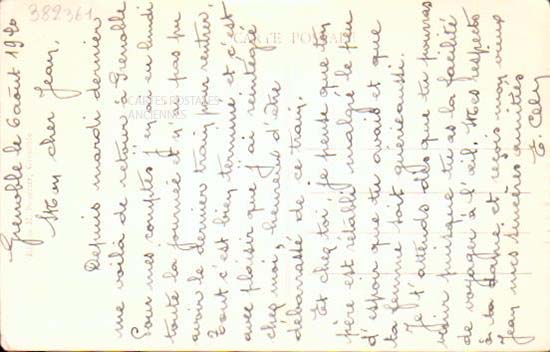 382361
CARTE POSTALE
CARTES POSTALES
ANCIENNES
Grenoble le 6 août 1920
Mon cher Jean,
Depuis mardi dernier
me voilà de retour à Grenoble
Pour mes comptes j'y ai eu lundi
toute la journée et n'ai pas pu
avoir le dernier train pour rentrer.
Tout c'est bien terminé et c'est
avec plaisir que j'ai réintégré
chez moi, heureux d'être
débarrassé de ce train.
Et chez toi, je pense que ton
père est rétabli malgré le peu
d'espoir que tu avais et que
ta femme soit guérie aussi.
Je t'attends dès que tu pourras
venir puisque tu as la facilité
de voyager à l'œil. Mes respects
à ta dame et reçois mon vieux
Jean mes sincères amitiés